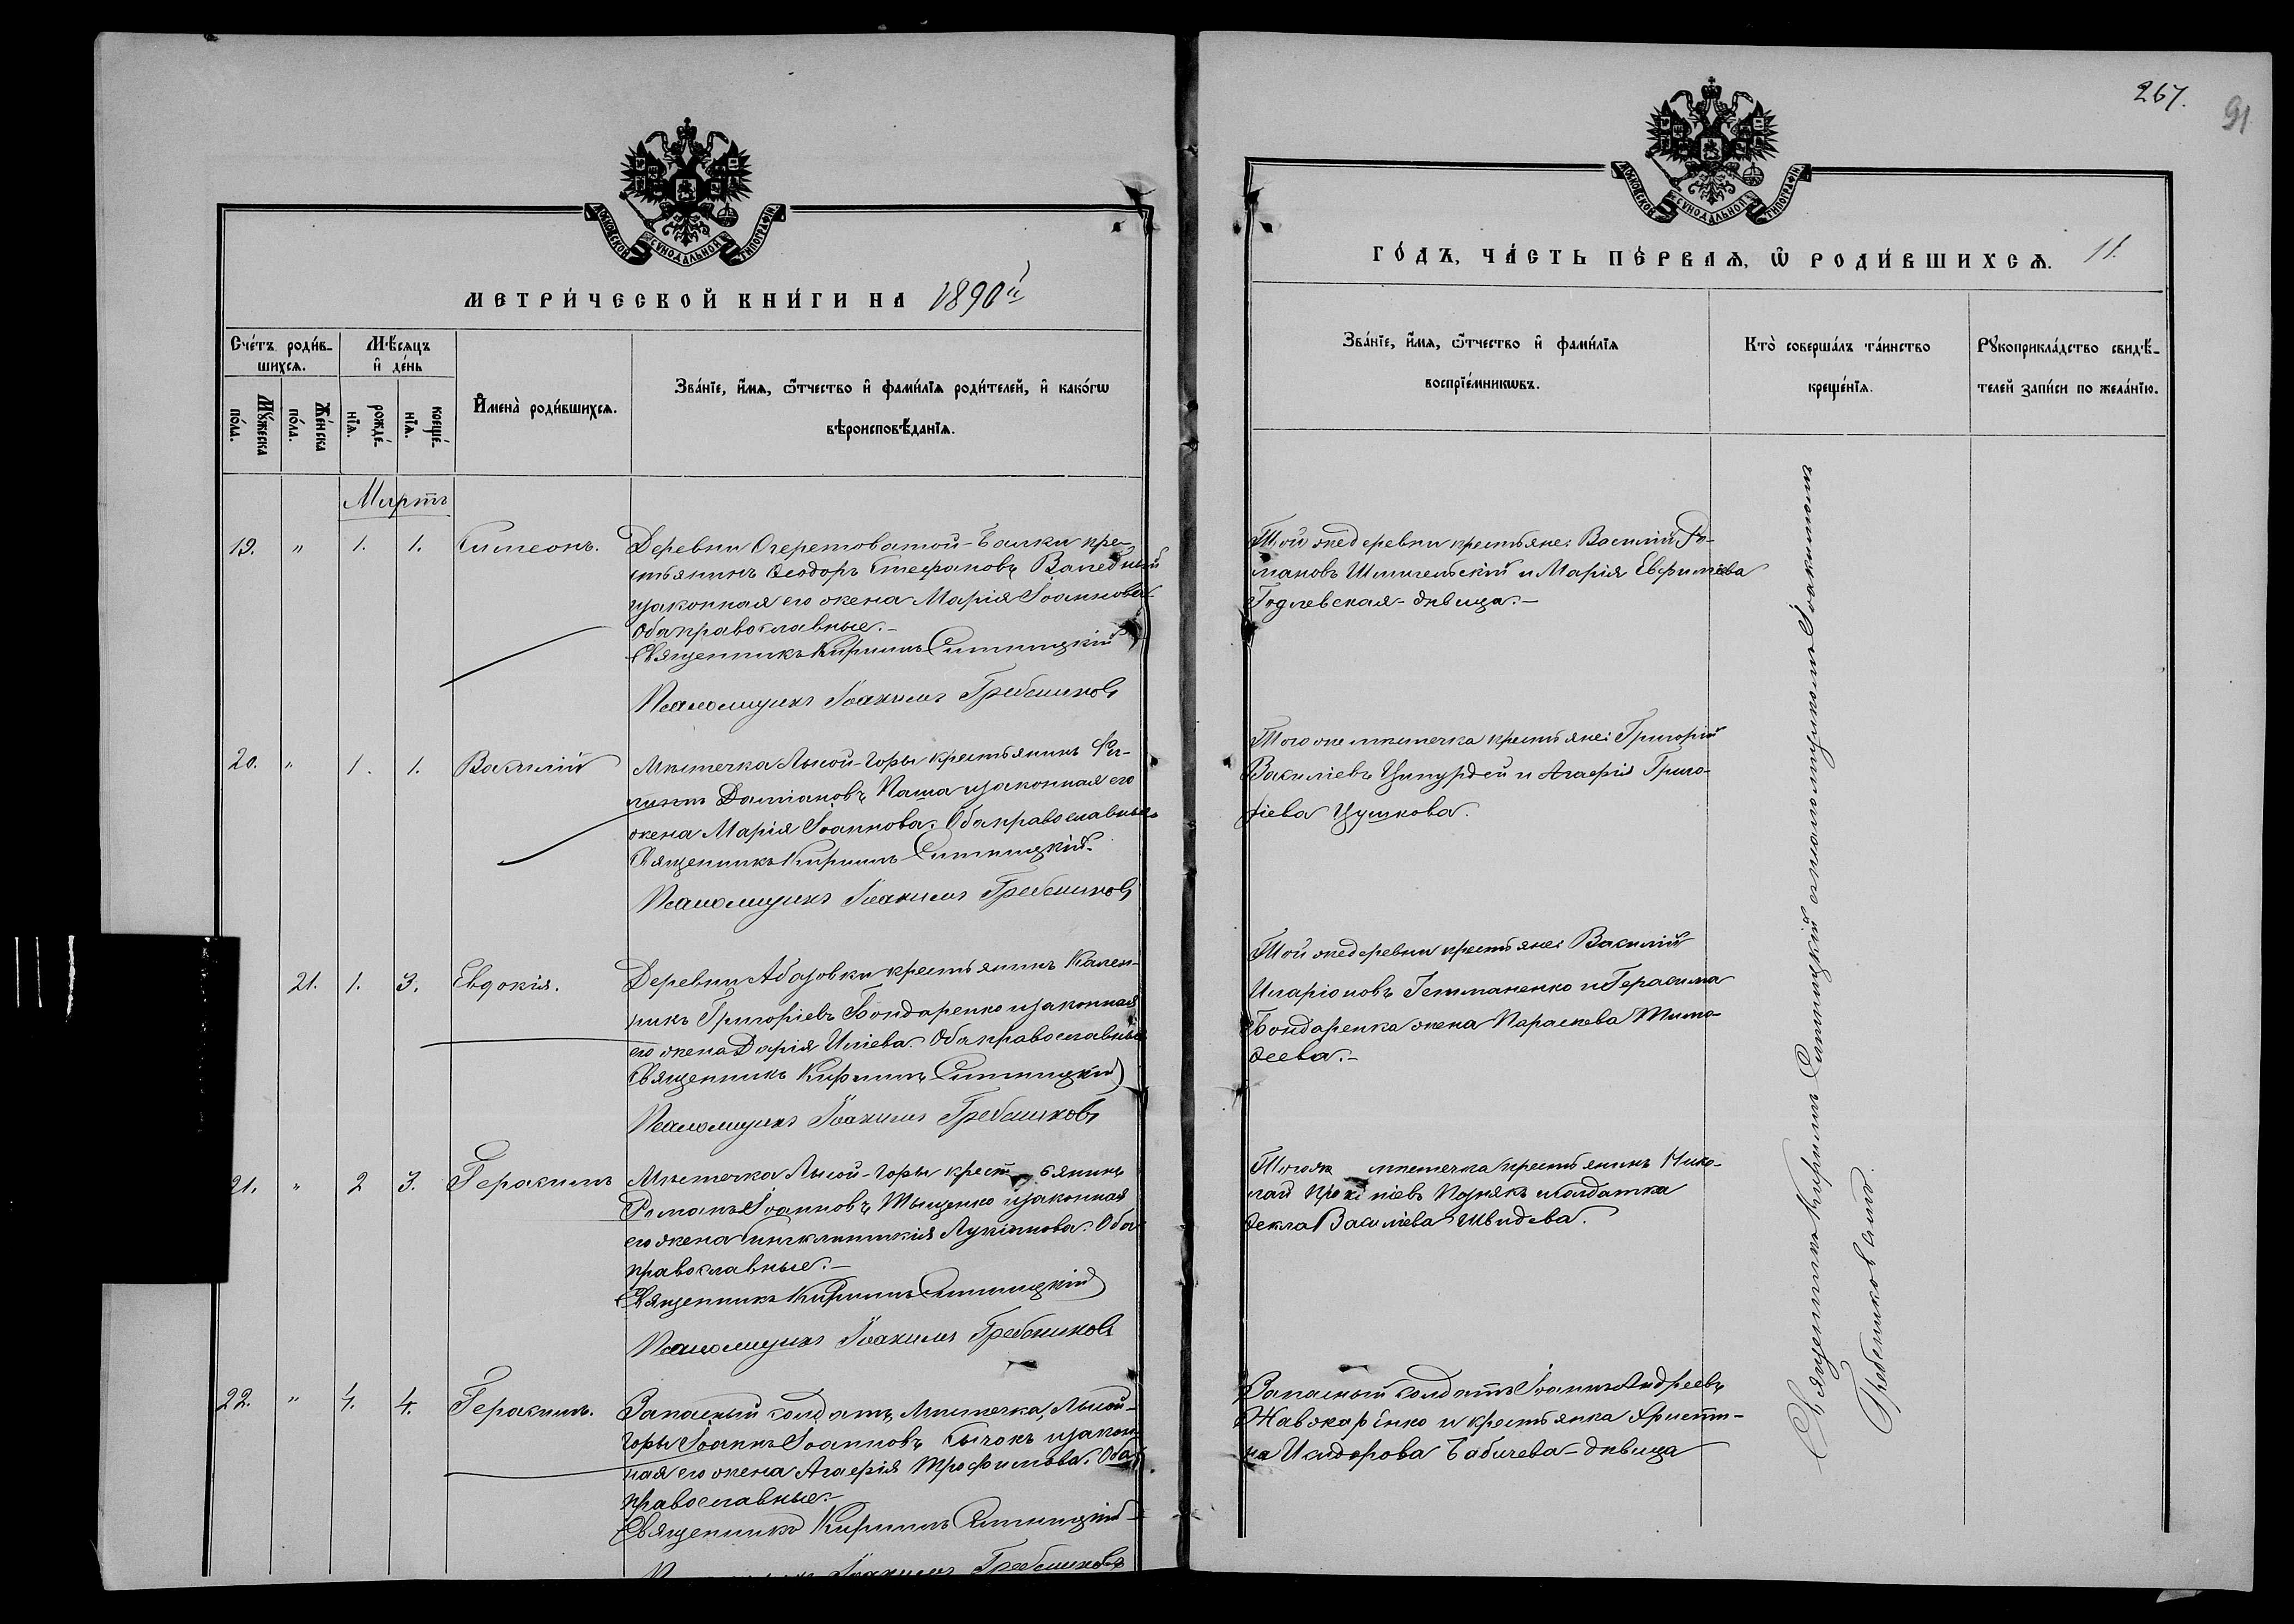 МОСКОВСКОЙ СѴНОДАЛЬНОЙ ТИПОГРАФІИ
МЕТРИ́ЧЕСКОЙ КНИ́ГИ НА 1890й
Сче́тъ роди́в-
шихсѧ.
Мꙋ́жеска по́ла.
Же́нска по́ла.
Мѣ́сѧцъ и҆ де́нь
рожде́-
нїѧ.
креще́-
нїѧ.
И҆мена̀ роди́вшихсѧ.
Зва́нїе, и҆́мѧ, ѻ҆́тчество и҆ фами́лїѧ роди́телей, и҆ како́гѡ
вѣроисповѣ́данїѧ.
Мартъ
19. " 1. 1. Симеонъ.
Деревни Очеретоватой-Балки кре-
стьянинъ Ѳеодоръ Стефановъ
и законная его жена Марія Іоаннова
Оба православные.-
Священникъ Кириллъ Синицкій
Псаломщикъ Іоакимъ Гребениковъ
20. " 1. 1. Василій
Мѣстечка Лысой-Горы крестьянинъ Фи-
липпъ Даміановъ Паша и законная его
жена Марія Іоаннова. Оба православные
Священникъ Кириллъ Синицкій.
Псаломщикъ Іоакимъ Гребениковъ
21. 1. 3. Евдокія.
Деревни Абазовки крестьянинъ Кален-
никъ Григоріевъ Бондаренко и законная
его жена Дарія Иліева. Оба православные
Священникъ Кириллъ Синицкій
Псаломщикъ Іоакимъ Гребениковъ
21. " 2 3. Герасимъ
Мѣстечка Лысой-Горы крестьянинъ
Романъ Іоанновъ Тыщенко и законная
его жена Синклитикія Лукіанова. Оба
православные.-
Священникъ Кириллъ Синицкій
Псаломщикъ Іоакимъ Гребениковъ
22. " 4. 4. Герасимъ.
Запасный солдатъ Мѣстечка Лысой-
Горы Іоаннъ Іоанновъ Сычокъ и закон-
ная его жена Агафія Трофимова. Оба
православные.-
Священникъ Кириллъ Синицкій
Іоакимъ Гребениковъ
267.
91
МОСКОВСКОЙ СѴНОДАЛЬНОЙ ТИПОГРАФІИ
ГО́ДЪ, ЧА́СТЬ ПЕ́РВАѦ, Ѡ҆ РОДИ́ВШИХСѦ. 11.
Зва́нїе, и҆́мѧ, ѻ҆́тчество и҆ фами́лїѧ
воспрїе́мникѡвъ.
Кто̀ соверша́лъ та́инство
креще́нїѧ.
Рꙋкоприкла́дство свидѣ́-
телей за́писи по жела́нїю.
Той же деревни крестьяне: Василій Ро-
мановъ и Марія Евфиміева
Годлевская-дѣвица.-
Того же мѣстечка крестьяне: Григорій
Василіевъ Ципурдей и Агафія Григо-
ріева Цушкова.
Той же деревни крестьяне: Василій
Иларіоновъ Гетманенко и Герасима
Бондаренка жена Параскева Тимо-
ѳеева.-
Того же мѣстечка крестьянинъ Нико-
лай Познякъ и солдатка
Ѳекла Василіева Швидева.
Запасный солдатъ Іоаннъ Андреевъ
Жавжаренко и крестьянка Христи-
на Исидорова Бабичева-дѣвица
Священникъ Кириллъ Синицкій съ псаломщикомъ Іоакимомъ
Гребениковымъ.